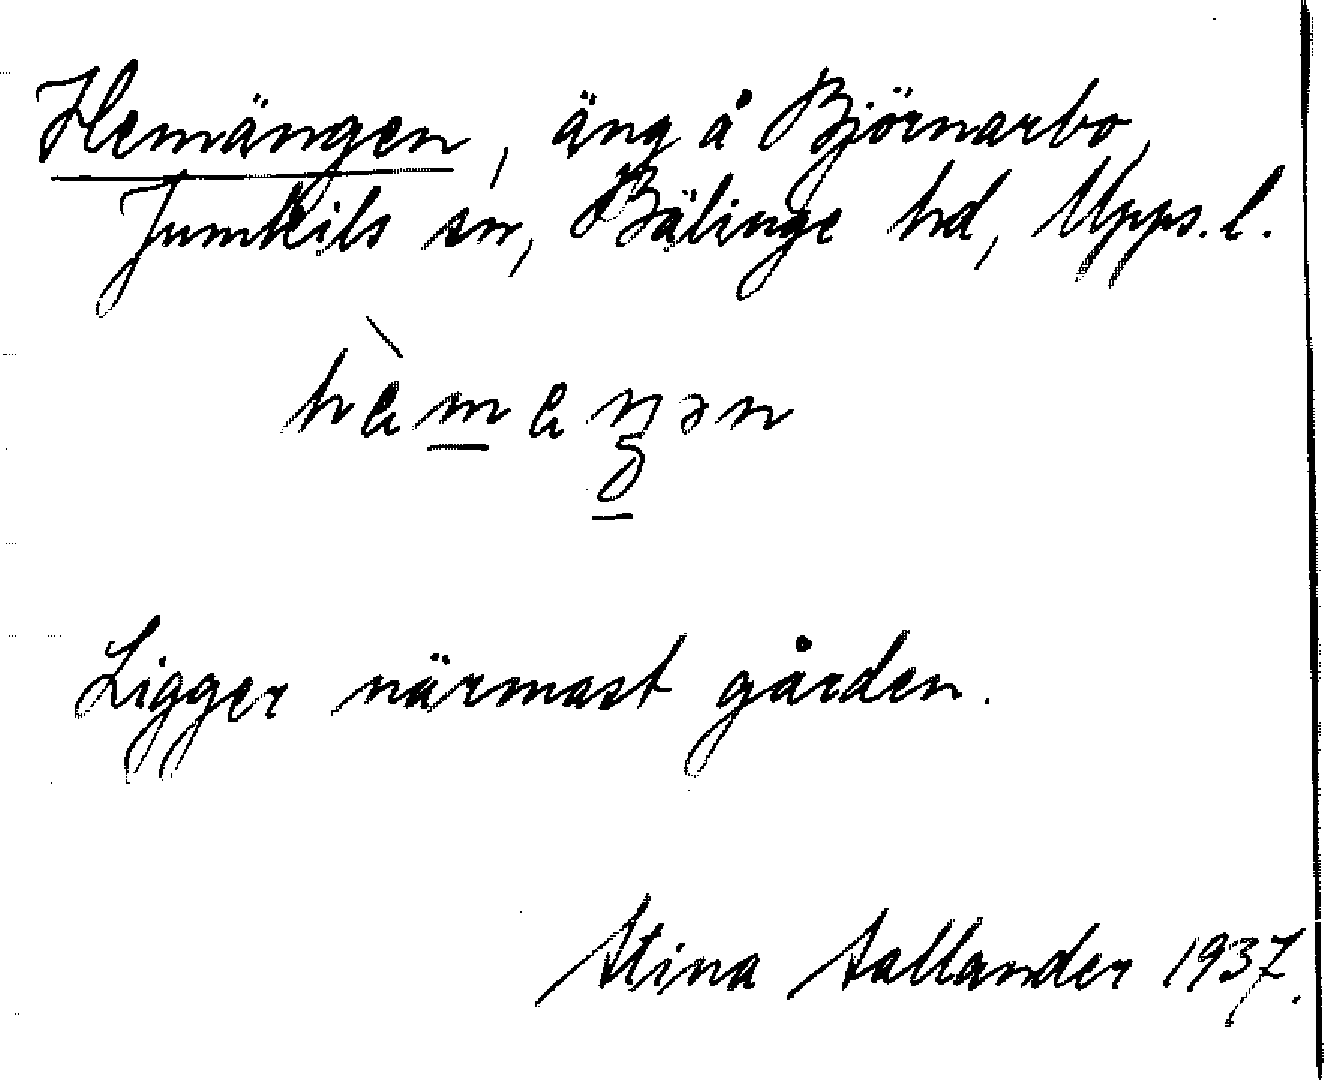 Hemängen, äng å Björnarbo,
Jumkils sn, Bälinge hd, Upps. l.
Ligger närmast gården.
Stina Sallander 1937.